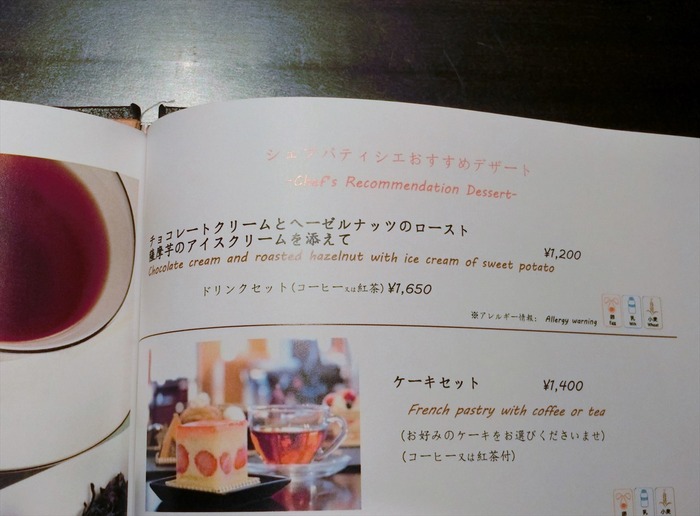 シェフパティシエおすすめデザート
-Chef's Recommendation Dessert-
チョコレートクリームとヘーゼルナッツのロースト
薩摩芋のアイスクリームを添えて ¥1,200
Chocolate cream and roasted hazelnut with ice cream of sweet potato
ドリンクセット(コーヒー又は紅茶) ¥1,650
※アレルギー情報: Allergy warning 卵 Egg 乳 Milk 小麦 Wheat
ケーキセット ¥1,400
French pastry with coffee or tea
(お好みのケーキをお選びくださいませ)
(コーヒー又は紅茶付)
卵 乳 小麦